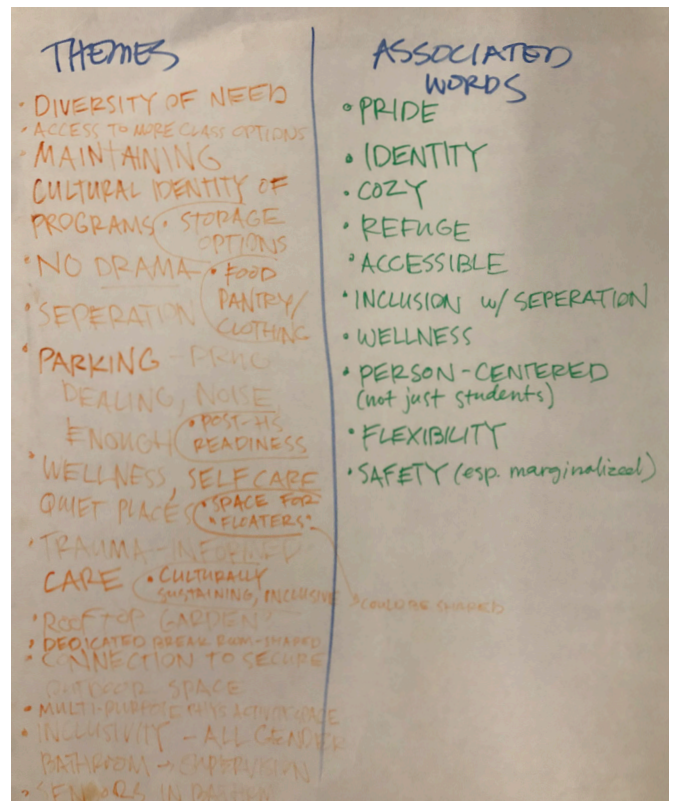 THEMES
• DIVERSITY OF NEED
• ACCESS TO MORE CLASS OPTIONS
• MAINTAINING
CULTURAL IDENTITY OF
PROGRAMS
• STORAGE
OPTIONS
• NO DRAMA
• FOOD
PANTRY/
CLOTHING
• SEPERATION
• PARKING – DRUG
DEALING, NOISE
ENOUGH
• POST-HS
READINESS
• WELLNESS, SELF CARE
QUIET PLACES
• SPACE FOR
"FLOATERS"
• TRAUMA-INFORMED
CARE
• CULTURALLY
SUSTAINING, INCLUSIVE
• ROOFTOP GARDEN
• DEDICATED BREAK ROOM-SHARED
• CONNECTION TO SECURE
OUTDOOR SPACE
• MULTI-PURPOSE PHYS ACTIVITY SPACE
• INCLUSIVITY – ALL GENDER
BATHROOM → SUPERVISION
• SENSORS IN
ASSOCIATED
WORDS
• PRIDE
• IDENTITY
• COZY
• REFUGE
• ACCESSIBLE
• INCLUSION w/ SEPERATION
• WELLNESS
• PERSON-CENTERED
(not just students)
• FLEXIBILITY
• SAFETY (esp. marginalized)
COULD BE SHARED